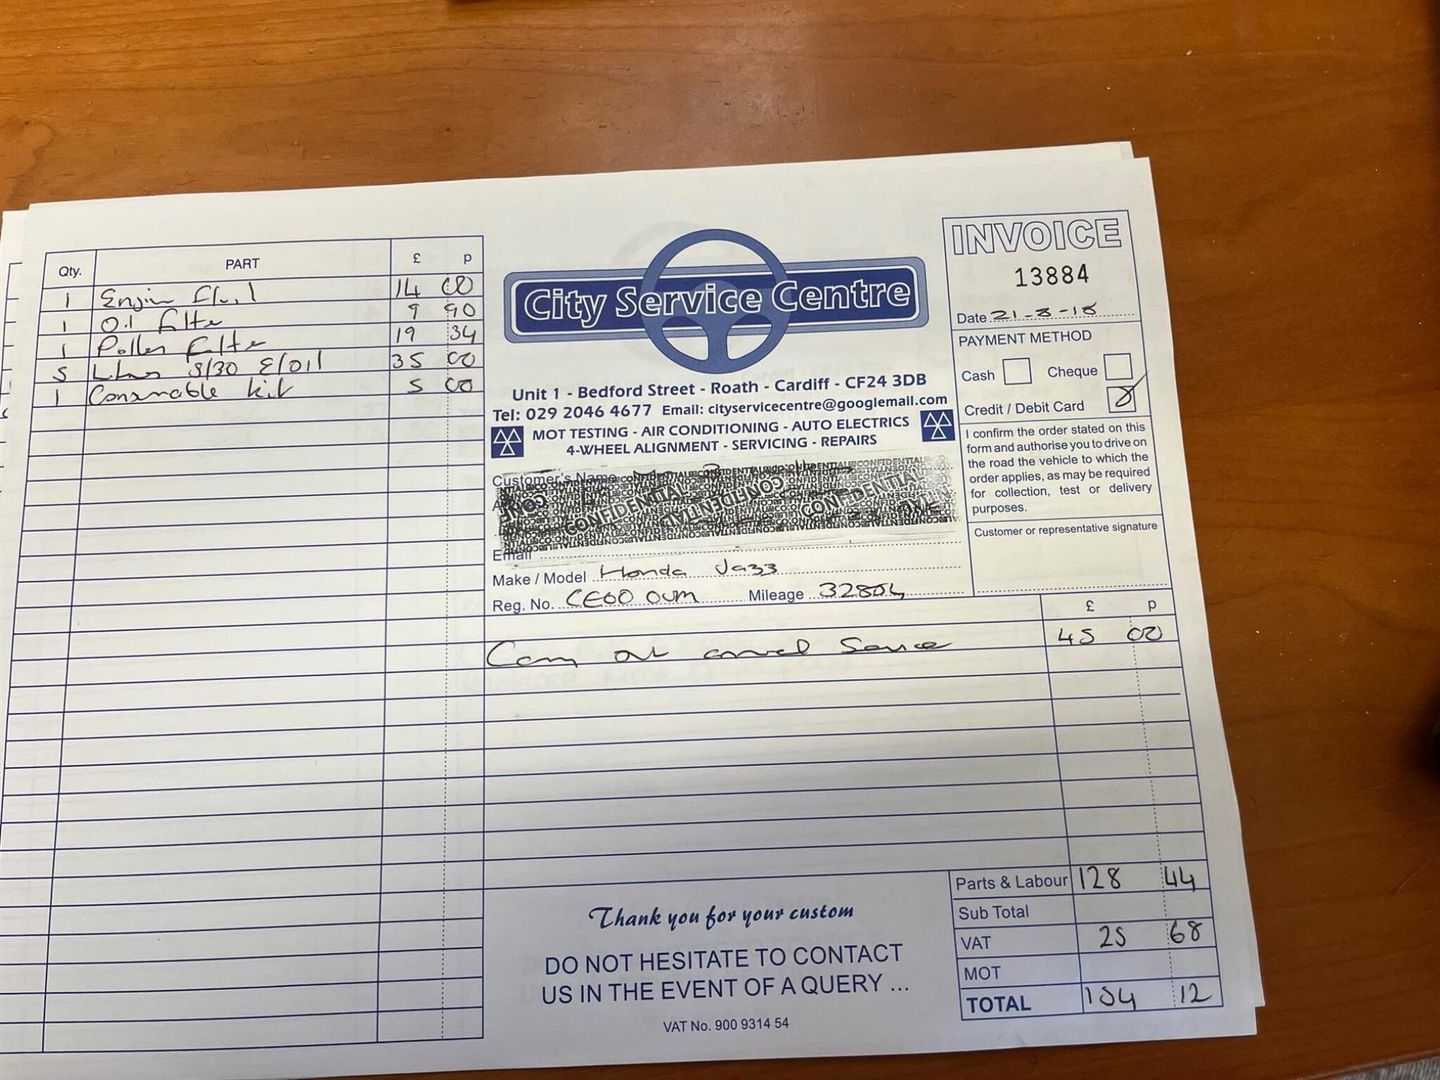 Qty. PART £ p
1 Engin Fluil 14 00
1 Oil Filter 9 90
1 Pollen Filter 19 34
5 Liters 5/30 E/oil 35 00
1 Consumable kit 5 00
City Service Centre
Unit 1 - Bedford Street - Roath - Cardiff - CF24 3DB
Tel: 029 2046 4677 Email: cityservicecentre@googlemail.com
MOT TESTING - AIR CONDITIONING - AUTO ELECTRICS
4-WHEEL ALIGNMENT - SERVICING - REPAIRS
Customer's Name
CONFIDENTIAL CONFIDENTIAL CONFIDENTIAL
Email
Make / Model Honda Jazz
Reg. No. CE60 OUM Mileage
INVOICE
13884
Date
PAYMENT METHOD
Cash Cheque
Credit / Debit Card
I confirm the order stated on this
form and authorise you to drive on
the road the vehicle to which the
order applies, as may be required
for collection, test or delivery
purposes.
Customer or representative signature
£ p
Carry out annual Service 45 00
Thank you for your custom
DO NOT HESITATE TO CONTACT
US IN THE EVENT OF A QUERY ...
VAT No. 900 9314 54
Parts & Labour 128 44
Sub Total
VAT 25 68
MOT
TOTAL 154 12